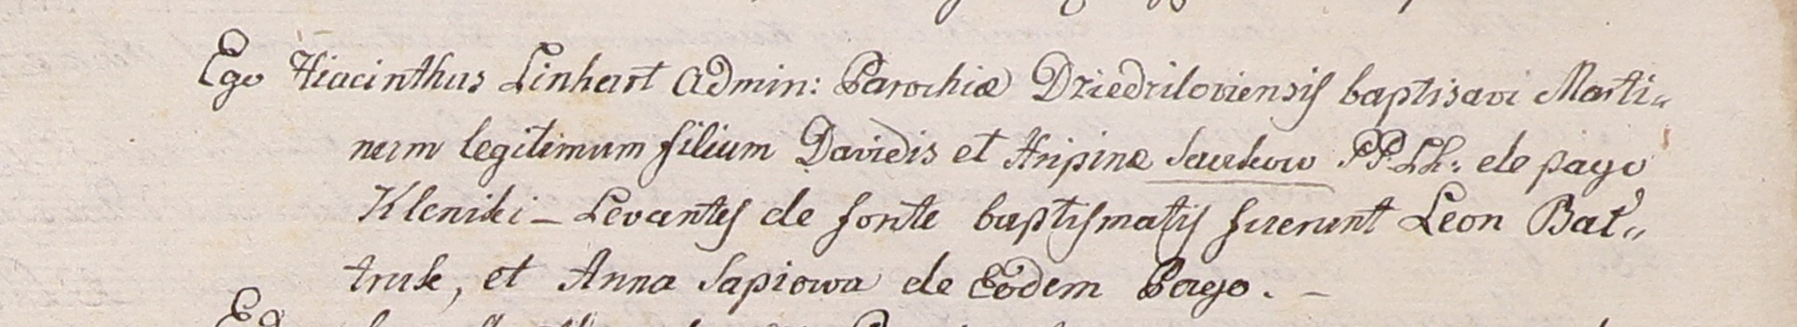 Ego Hiacinthus Linhart Admin: Parochiæ Dziedziloviensis baptisavi Marti„
num legitimum filium Davidis et Hripinæ Saukow PP. Lh: de pago
Kleniki – Levantes de fonte baptismatis fuerunt Leon Bat„
truk, et Anna Sapiowa de Eodem Pago. –